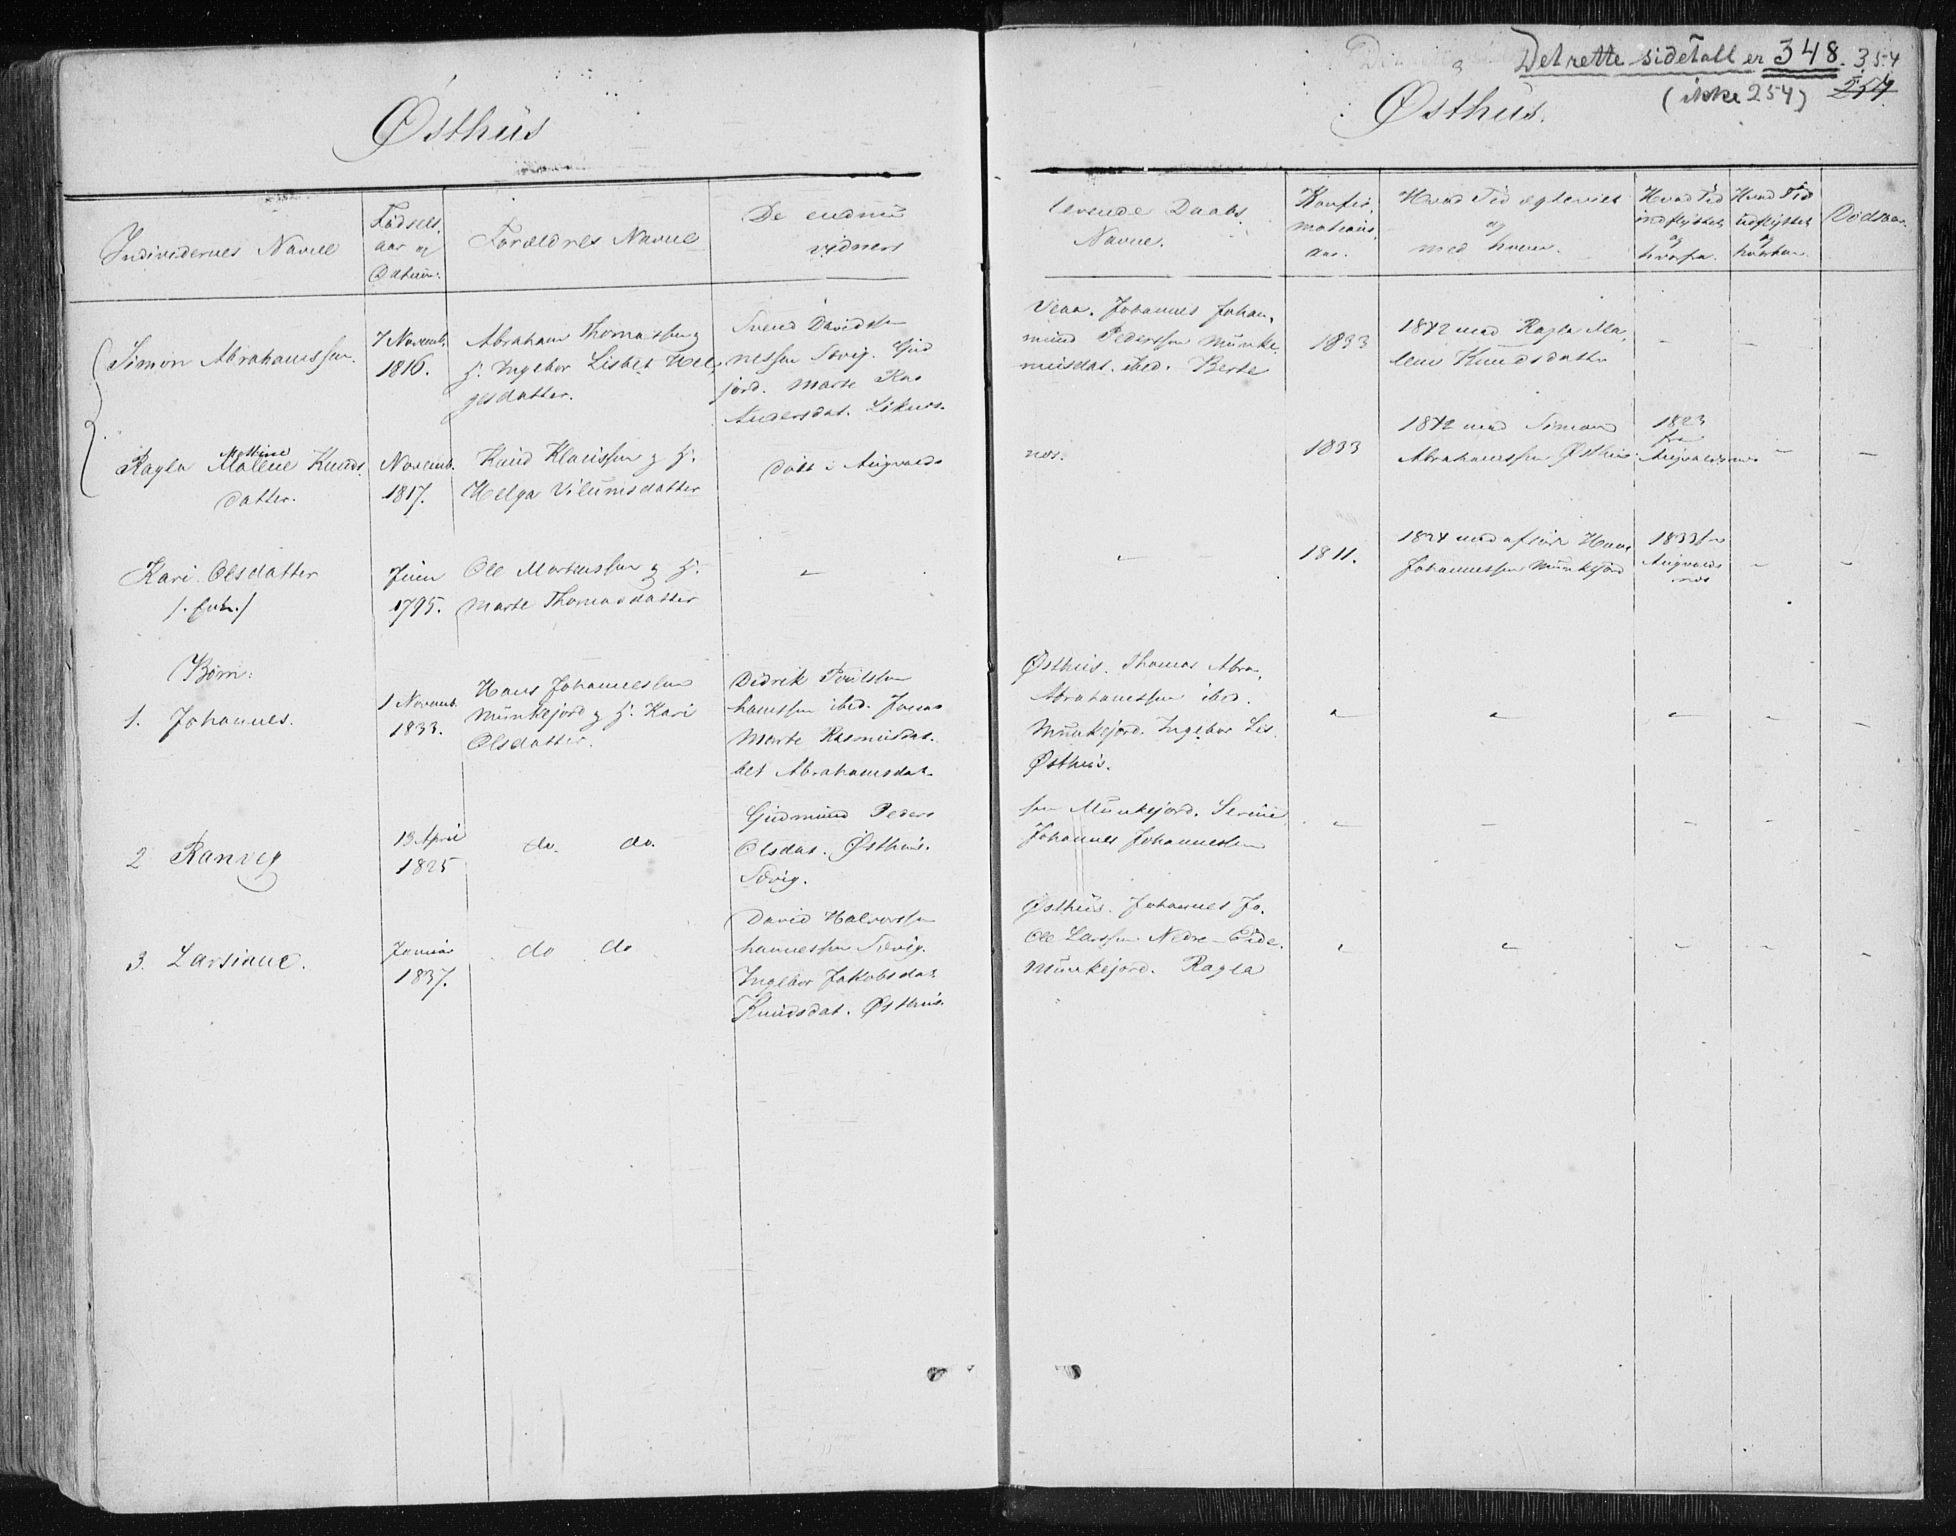 Det rette sidetall er 348. 354
(ikke 254) 254
Østhus
Østhus.
Individernes Navne
Fødsels
aar og
Datum.
Forældres Navne
De endnu
vidners
levende Daabs
Navne.
Konfir,
mations,
aar.
Hvad Tid ægteviet
og
med hvem.
Hvad Tid
indflyttet
og
hvorfra.
Hvad Tid
udflyttet
og
hvorhen.
Dødsaar.
Simon Abrahamssen.
7 Novemb.
1816.
Abraham Thomassen og
H. Ingebor Lisbet Hel,
gesdatter.
Svend Davidsen
nessen Sævig. Gud
jord. Marte Ras
Andersdat. Liknes.
Veaa. Johannes Johan,
mund Pederssen Munke,
musdat. ibid. Berte
1833
1842 med Ragla Ma,
lene Knudsdatter
- - -
Mattine
Ragla Malene Knuds
datter.
Novemb.
1817.
Knud Klaussen og H.
Helga Villumsdatter
Døbt i Augvalds
nes.
1833
1842 med Simon
Abrahamssen Østhus
1823
fra
Augvaldsnes
- -
Kari Olsdatter
Juni
1795.
Ole Mortenssen og H.
Marte Thomasdatter
-
-
1811.
1824 med afdøde Hans
Johannessen Munkejord
1833 fra
Augvalds
nes
- -
Børn:
1. Johannes.
1 Novemb.
1833.
Hans Johannessen
Munkejord og H. Kari
Olsdatter.
Didrik Poulsen
hamssen ibid. Jonas
Marte Rasmusdat.
bet Abrahamsdat.
Østhus. Thomas Abra,
Abrahamssen ibid.
Munkejord. Ingebor Lis
Østhus.
- - - - -
2 Ranveg
13 April
1825
do. do.
Gudmund Peders
Olsdat. Østhus.
Sævig.
sen Munkejord. Serine
Johannes Johannessen
- - - - -
3. Larsiane.
Januar
1837.
do do
David Halvorssen
hannessen Sævig.
Ingebor Jakobsdat
Knudsdat. Østhus.
Østhus. Johannes Jo.
Ole Larssen Nedre-Eide.
Munkejord. Ragla
- - - - -